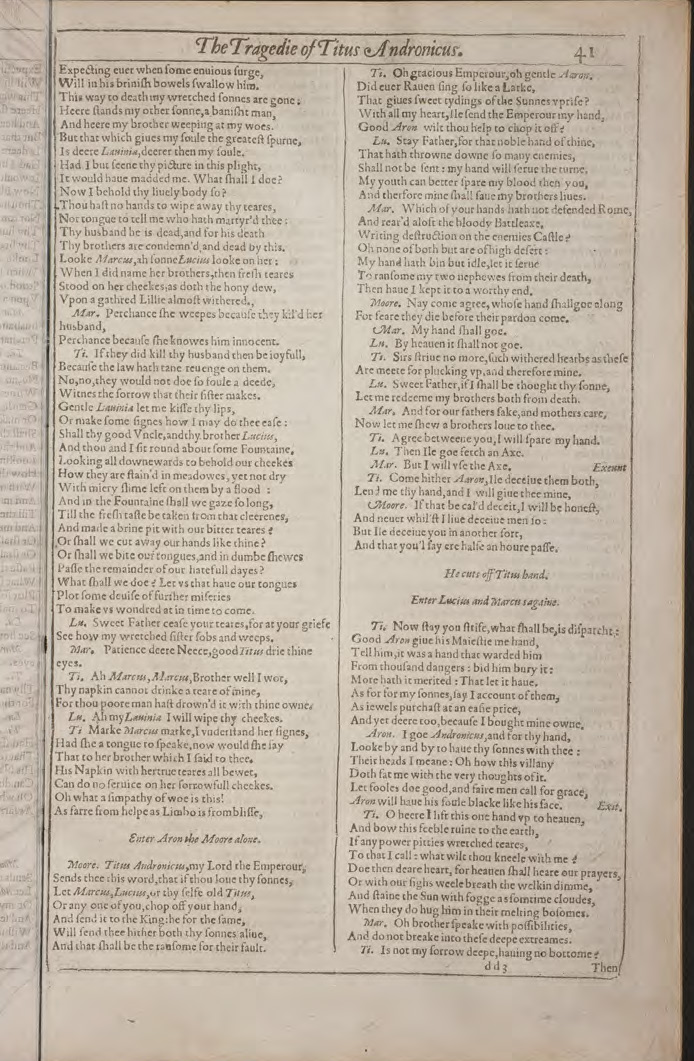 The Tragedie of Titus Andronicus.
41
Expecting euer when ſome enuious ſurge,
Will in his briniſh bowels ſwallow him.
This way to death my wretched ſonnes are gone:
Heere ſtands my other ſonne, a baniſht man,
And heere my brother weeping at my woes.
But that which giues my ſoule the greateſt ſpurne,
Is deere Lauinia, deerer then my ſoule.
Had I but ſeene thy picture in this plight,
It would haue madded me. What ſhall I doe?
Now I behold thy liuely body ſo?
Thou haſt no hands to wipe away thy teares,
Nor tongue to tell me who hath martyr'd thee:
Thy husband he is dead, and for his death
Thy brothers are condemn'd, and dead by this.
Looke Marcus, ah ſonne Lucius looke on her:
When I did name her brothers, then freſh teares
Stood on her cheekes, as doth the hony dew,
Vpon a gathred Lillie almoſt withered.
Mar. Perchance ſhe weepes becauſe they kil'd her
husband,
Perchance becauſe ſhe knowes him innocent.
Ti. If they did kill thy husband then be ioyfull,
Becauſe the law hath tane reuenge on them.
No, no, they would not doe ſo foule a deede,
Witnes the ſorrow that their ſiſter makes.
Gentle Lauinia let me kiſſe thy lips,
Or make ſome ſignes how I may do thee eaſe:
Shall thy good Vncle, and thy brother Lucius,
And thou and I ſit round about ſome Fountaine,
Looking all downewards to behold our cheekes
How they are ſtain'd in meadowes, yet not dry
With miery ſlime left on them by a flood:
And in the Fountaine ſhall we gaze ſo long,
Till the freſh taſte be taken from that cleerenes,
And made a brine pit with our bitter teares?
Or ſhall we cut away our hands like thine?
Or ſhall we bite our tongues, and in dumbe ſhewes
Paſſe the remainder of our hatefull dayes?
What ſhall we doe? Let vs that haue our tongues
Plot ſome deuiſe of further miſeries
To make vs wondred at in time to come.
Lu. Sweet Father ceaſe your teares, for at your griefe
See how my wretched ſiſter ſobs and weeps.
Mar. Patience deere Neece, good Titus drie thine
eyes.
Ti. Ah Marcus, Marcus, Brother well I wot,
Thy napkin cannot drinke a teare of mine,
For thou poore man haſt drown'd it with thine owne.
Lu. Ah my Lauinia I will wipe thy cheekes.
Ti Marke Marcus marke, I vnderſtand her ſignes,
Had ſhe a tongue to ſpeake, now would ſhe ſay
That to her brother which I ſaid to thee.
His Napkin with her true teares all bewet,
Can do no ſeruice on her ſorrowfull cheekes.
Oh what a ſimpathy of woe is this!
As farre from helpe as Limbo is from bliſſe,
Enter Aron the Moore alone.
Moore. Titus Andronicus, my Lord the Emperour,
Sends thee this word, that if thou loue thy ſonnes,
Let Marcus, Lucius, or thy ſelfe old Titus,
Or any one of you, chop off your hand,
And ſend it to the King: he for the ſame,
Will ſend thee hither both thy ſonnes aliue,
And that ſhall be the ranſome for their fault.
Ti. Oh gracious Emperour, oh gentle Aaron.
Did euer Rauen ſing ſo like a Larke,
That giues ſweet tydings of the Sunnes vpriſe?
With all my heart, Ile ſend the Emperour my hand,
Good Aron wilt thou help to chop it off?
Lu. Stay Father, for that noble hand of thine,
That hath throwne downe ſo many enemies,
Shall not be ſent: my hand will ſerue the turne,
My youth can better ſpare my blood then you,
And therfore mine ſhall ſaue my brothers liues.
Mar. Which of your hands hath not defended Rome,
And rear'd aloft the bloody Battleaxe,
Writing deſtruction on the enemies Caſtle?
Oh none of both but are of high deſert:
My hand hath bin but idle, let it ſerue
To ranſome my two nephewes from their death,
Then haue I kept it to a worthy end.
Moore. Nay come agree, whoſe hand ſhall goe along
For feare they die before their pardon come.
Mar. My hand ſhall goe.
Lu. By heauen it ſhall not goe.
Ti. Sirs ſtriue no more, ſuch withered hearbs as theſe
Are meete for plucking vp, and therefore mine.
Lu. Sweet Father, if I ſhall be thought thy ſonne,
Let me redeeme my brothers both from death.
Mar. And for our fathers ſake, and mothers care,
Now let me ſhew a brothers loue to thee.
Ti. Agree betweene you, I will ſpare my hand.
Lu. Then Ile goe fetch an Axe.
Mar. But I will vſe the Axe. Exeunt
Ti. Come hither Aaron, Ile deceiue them both,
Lend me thy hand, and I will giue thee mine,
Moore. If that be cal'd deceit, I will be honeſt,
And neuer whil'ſt I liue deceiue men ſo:
But Ile deceiue you in another ſort,
And that you'l ſay ere halfe an houre paſſe.
He cuts off Titus hand.
Enter Lucius and Marcus againe.
Ti. Now ſtay you ſtrife, what ſhall be, is diſpatcht:
Good Aron giue his Maieſtie me hand,
Tell him, it was a hand that warded him
From thouſand dangers: bid him bury it:
More hath it merited: That let it haue.
As for for my ſonnes, ſay I account of them,
As iewels purchaſt at an eaſie price,
And yet deere too, becauſe I bought mine owne.
Aron. I goe Andronicus, and for thy hand,
Looke by and by to haue thy ſonnes with thee:
Their heads I meane: Oh how this villany
Doth fat me with the very thoughts of it.
Let fooles doe good, and faire men call for grace,
Aron will haue his ſoule blacke like his face. Exit.
Ti. O heere I lift this one hand vp to heauen,
And bow this feeble ruine to the earth,
If any power pitties wretched teares,
To that I call: what wilt thou kneele with me?
Doe then deare heart, for heauen ſhall heare our prayers,
Or with our ſighs weele breath the welkin dimme,
And ſtaine the Sun with fogge as ſomtime cloudes,
When they do hug him in their melting boſomes.
Mar. Oh brother ſpeake with poſſibilities,
And do not breake into theſe deepe extreames.
Ti. Is not my ſorrow deepe, hauing no bottome?
dd3
Then